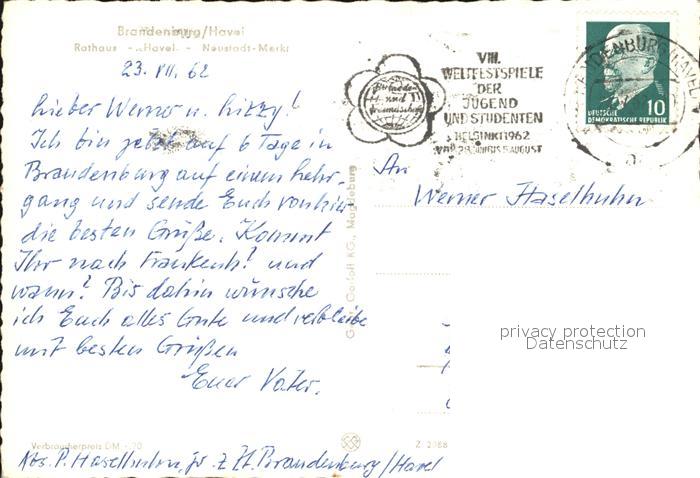 Brandenburg/Havel
Rathaus - Havel - Neustadt-Markt
23. VII. 62
Lieber Werner u. Lizzy!
Ich bin jetzt auf 6 Tage in
Brandenburg auf einem Lehr-
gang und sende Euch von hier
die besten Grüße. Kommt
Ihr nach Frankenh.? und
wann? Bis dahin wünsche
ich Euch alles Gute und verbleibe
mit besten Grüßen
Euer Vater.
Verbraucherpreis DM -,20
Abs. P. Haselhuhn, z. Zt. Brandenburg/Havel
Garloff KG., Magdeburg
VIII.
WELTFESTSPIELE
DER
JUGEND
UND STUDENTEN
HELSINKI 1962
und
10
DEUTSCHE
DEMOKRATISCHE REPUBLIK
An
Werner Haselhuhn
privacy protection
Datenschutz